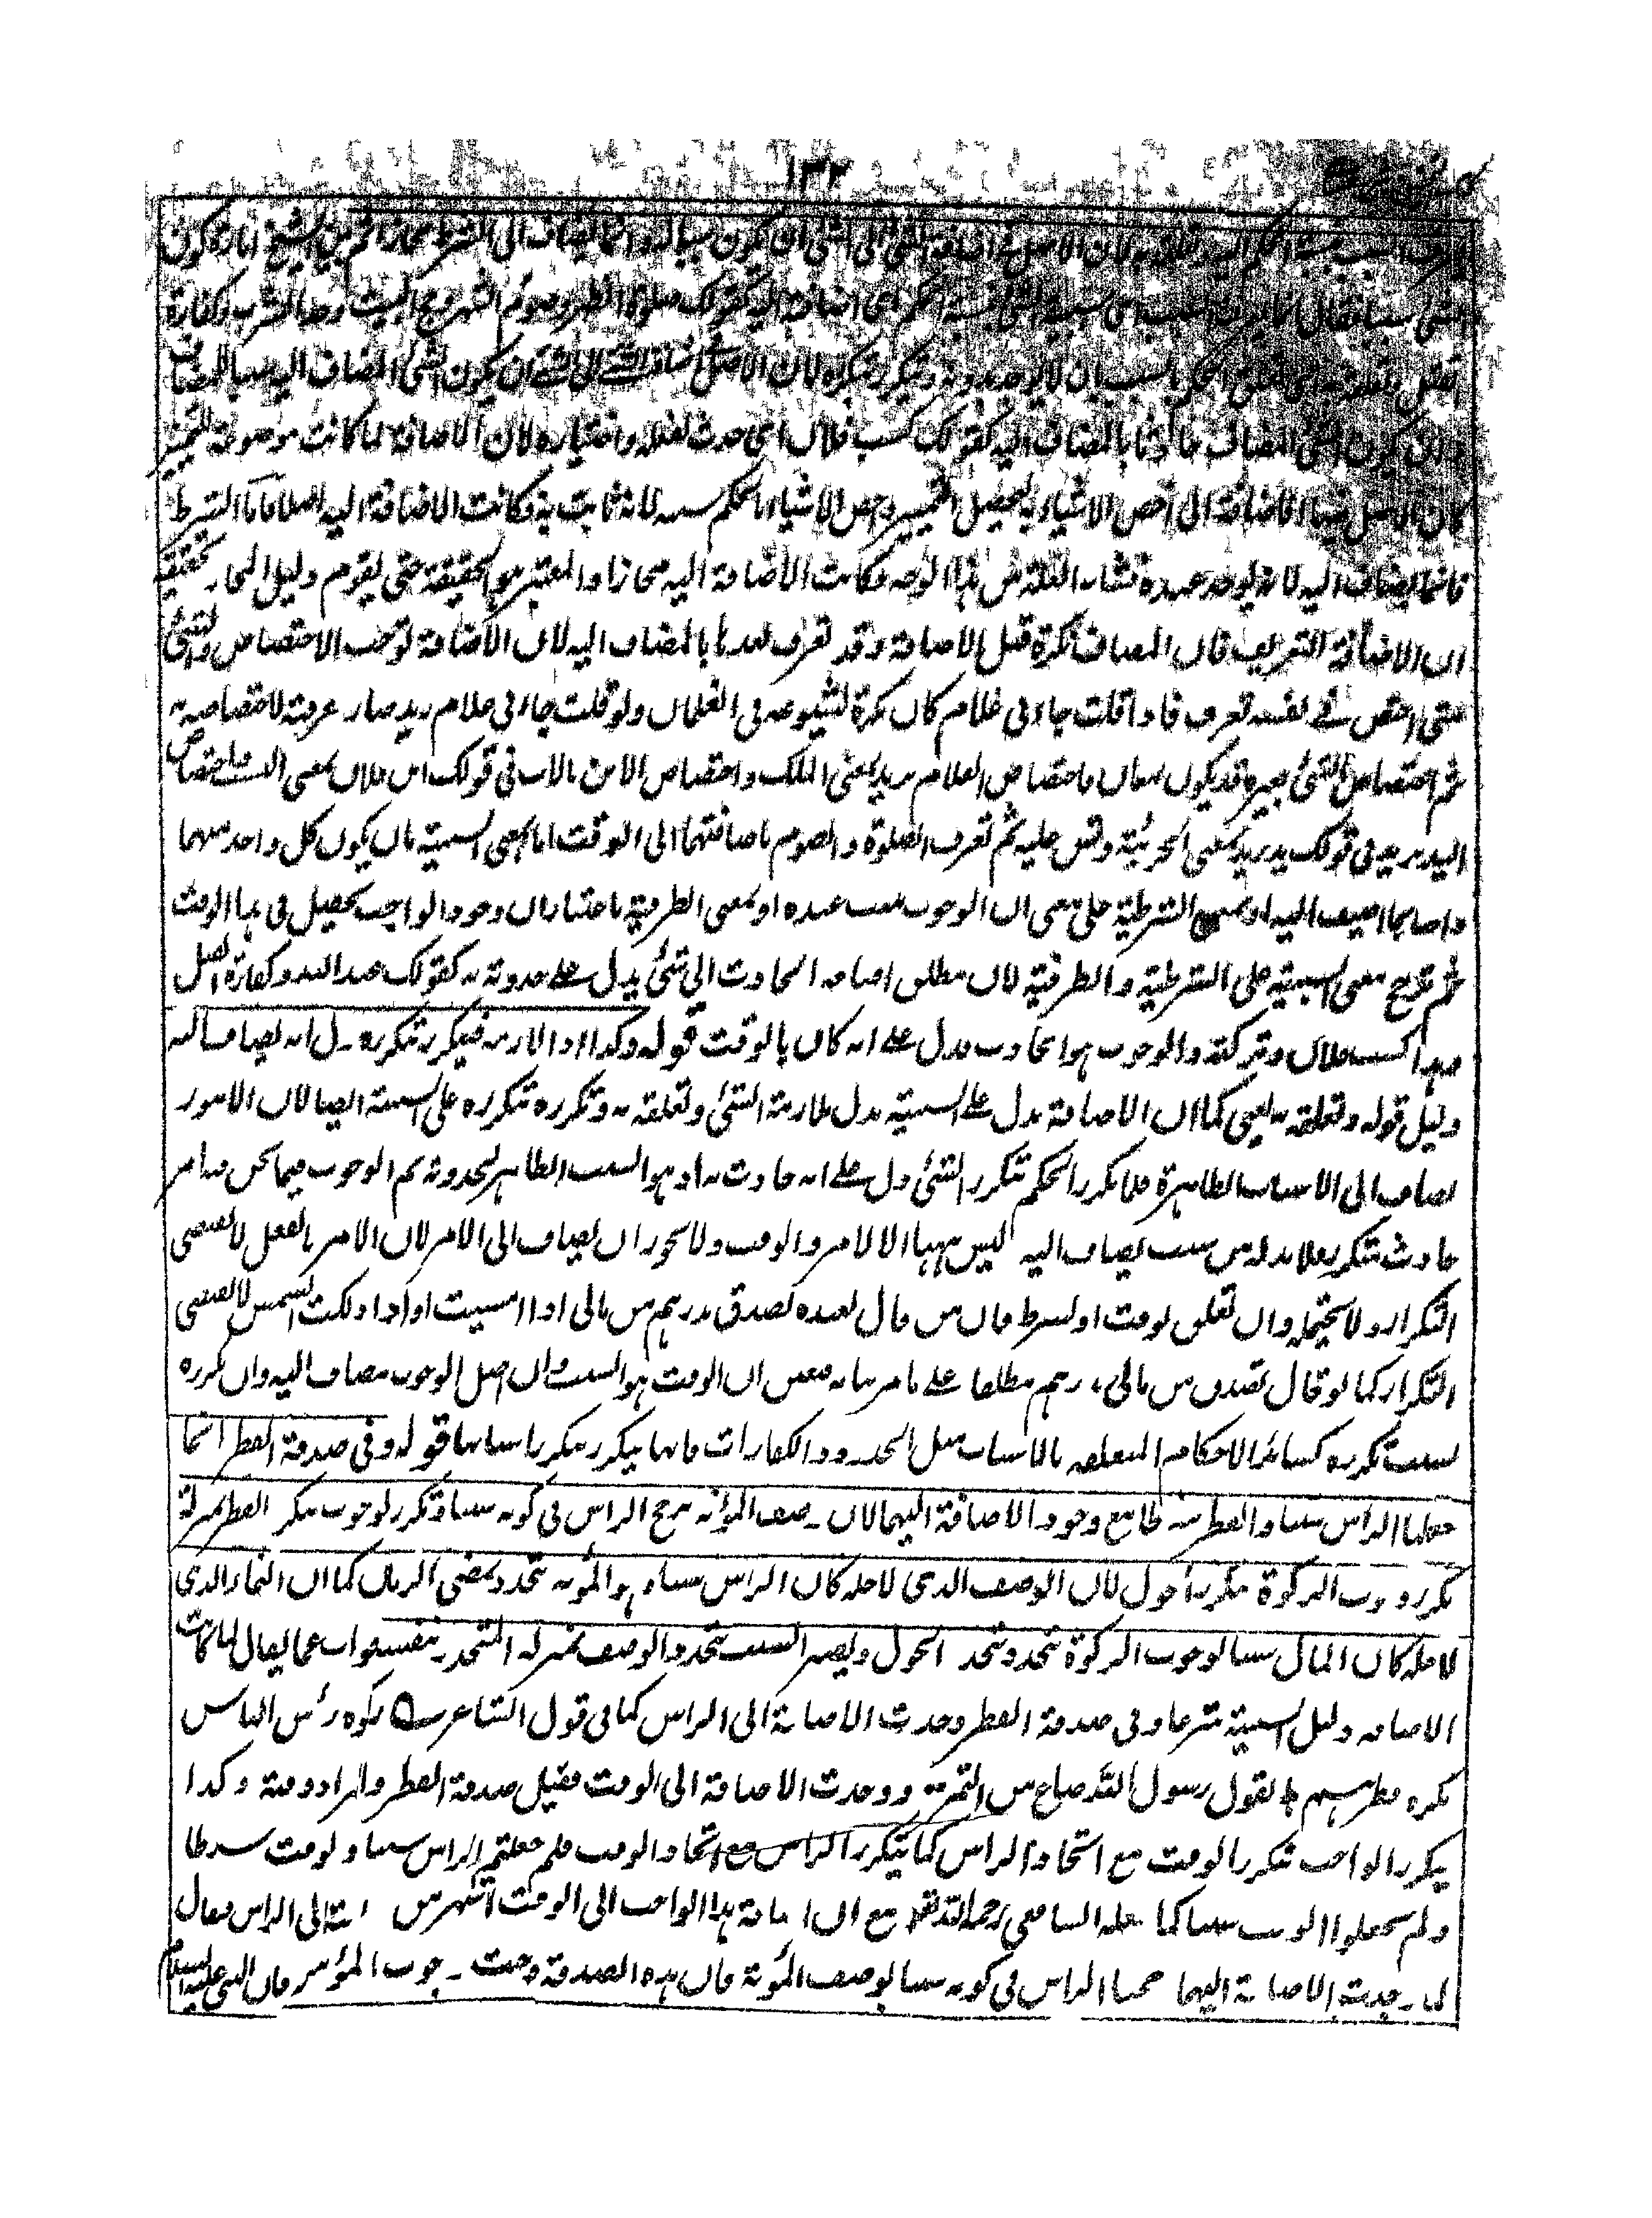 ١٣٢
يعرف السبب بنسبة الحكم اليه وتعلقه به لان الاصل في اضافة الشئ الى الشئ ان يكون سببا له وانما يضاف الى الشرط مجازا ثم بين الشيخ امارة كون
الشئ سببا فقال انما يعرف السبب اى سببية الشئ بنسبة الحكم اى اضافته اليه كقولك صلوة الظهر وصوم الشهر وحج البيت وحد الشرب وكفارة
القتل وتعلقه به اى تعلق الحكم بالسبب بان لا يوجد بدونه ويتكرر بتكرره لان الاصل في اضافة الشئ الى الشئ ان يكون الشئ المضاف اليه سببا للمضاف
وان يكون الشئ المضاف حادثا بالمضاف اليه كقولك كسب فلان اى حدث بفعله واختياره لان الاضافة لما كانت موضوعة للتمييز
كان الاصل فيها الاضافة الى اخص الاشياء به ليحصل التمييز واخص الاشياء بالحكم سببه لانه ثابت به فكانت الاضافة اليه اصلا فاما الشرط
فانما يضاف اليه لانه يوجد عنده فشابه العلة من هذا الوجه فكانت الاضافة اليه مجازا والمعتبر هو الحقيقة حتى يقوم دليل المجاز تحقيقه
ان الاضافة للتعريف فان المضاف نكرة قبل الاضافة وقد تعرف بعدها بالمضاف اليه لان الاضافة توجب الاختصاص والشئ
متى اختص في نفسه تعرف فاذا قلت جاءنى غلام كان نكرة لشيوعه فى الغلمان ولو قلت جاءنى غلام زيد صار معرفة لاختصاصه به
ثم اختصاص الشئ بغيره قد يكون بمعان فاختصاص الغلام بزيد بمعنى الملك واختصاص الابن بالاب فى قولك ابن فلان بمعنى النسب واختصاص
اليد بزيد فى قولك يد زيد بمعنى الجزئية وقس عليه ثم تعرف الصلوة والصوم باضافتهما الى الوقت اما بمعنى السببية بان يكون كل واحد منهما
واجبا بما اضيف اليه او بمعنى الشرطية على معنى ان الوجوب يثبت عنده او بمعنى الظرفية باعتبار ان وجود الواجب يحصل فى هذا الوقت
ثم ترجح معنى السببية على الشرطية والظرفية لان مطلق اضافة الحادث الى شئ يدل على حدوثه به كقولك عبد الله وكفارة القتل
وهذا كسب فلان وتركته والوجوب هو الحادث فدل على انه كان بالوقت قوله وكذا اذا لازمه فيتكرر بتكرره دل انه يضاف اليه
دليل قوله وتعلقه به يعنى كما ان الاضافة تدل على السببية تدل ملازمة الشئ وتعلقه به وتكرره بتكرره على السببية ايضا لان الامور
تضاف الى الاسباب الظاهرة فلما تكرر الحكم بتكرر الشئ دل على انه حادث به اذ هو السبب الظاهر لحدوثه ثم الوجوب فيما نحن فيه امر
حادث يتكرر فلا بد له من سبب يضاف اليه وليس ههنا الا الامر والوقت ولا يجوز ان يضاف الى الامر لان الامر بالفعل لا يقتضى
التكرار ولا يحتمله وان تعلق بوقت او بشرط فان من قال لعبده تصدق بدرهم من مالى اذا امسيت او اذا دلكت الشمس لا يقتضى
التكرار كما لو قال تصدق من مالى بدرهم مطلقا على ما مر بيانه فتعين ان الوقت هو السبب وان اصل الوجوب مضاف اليه وان تكرره
بسبب تكرره كسائر الاحكام المتعلقة بالاسباب مثل الحدود والكفارات فانها تتكرر بتكرر اسبابها قوله وفى صدقة الفطر انما
جعلنا الراس سببا والفطر شرطا مع وجود الاضافة اليهما لان وصف المؤنة يرجح الراس فى كونه سببا وتكرر الوجوب بتكرر الفطر بمنزلة
تكرر وجوب الزكوة بتكرر الحول لان الوصف الذى لاجله كان الراس سببا وهو المؤنة يتجدد بمضى الزمان كما ان النماء الذى
لاجله كان المال سببا لوجوب الزكوة يتجدد بتجدد الحول ويصير السبب بتجدد الوصف بمنزلة المتجدد بنفسه جواب عما يقال لما كانت
الاضافة دليل السببية شرعا وفى صدقة الفطر وجدت الاضافة الى الراس كما فى قول الشاعر زكوة رؤس الناس
بكرة فطرهم بقول رسول الله صاع من التمر ووجدت الاضافة الى الوقت فقيل صدقة الفطر والمراد وقته وكذا
يتكرر الواجب بتكرر الوقت مع اتحاد الراس كما يتكرر بتكرر الراس مع اتحاد الوقت فلم جعلتم الراس سببا والوقت شرطا
ولم تجعلوا الوقت سببا كما جعله الشافعى رحمه الله مع ان اضافة هذا الواجب الى الوقت اشهر من اضافته الى الراس فقال
لما وجدت الاضافة اليهما رجحنا الراس فى كونه سببا بوصف المؤنة فان هذه الصدقة وجبت وجوب المؤن فان النبى عليه السلام